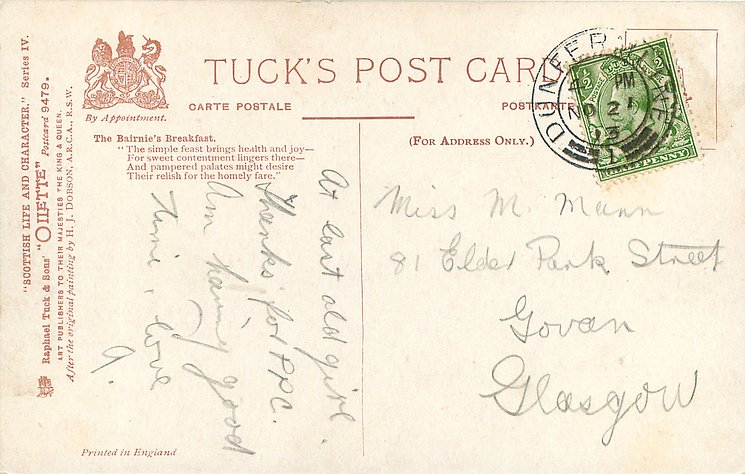 TUCK'S POST CARD
By Appointment.
CARTE POSTALE
POSTKARTE
(FOR ADDRESS ONLY.)
The Bairnie's Breakfast.
"The simple feast brings health and joy—
For sweet contentment lingers there—
And pampered palates might desire
Their relish for the homely fare."
"SCOTTISH LIFE AND CHARACTER." Series IV.
Raphael Tuck & Sons' "OILETTE" Postcard 9479.
ART PUBLISHERS TO THEIR MAJESTIES THE KING & QUEEN.
After the original painting by H. J. DOBSON, A.R.C.A., R.S.W.
At last old girl.
Thanks for P.P.C.
Am having good
time, love
A.
Miss M. Mann
81 Elder Park Street
Govan
Glasgow
DUNFERMLINE
PM
NO 21
HALFPENNY
Printed in England